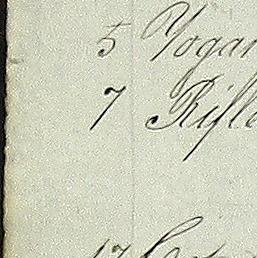 5 Yogar
7 Rifle
17